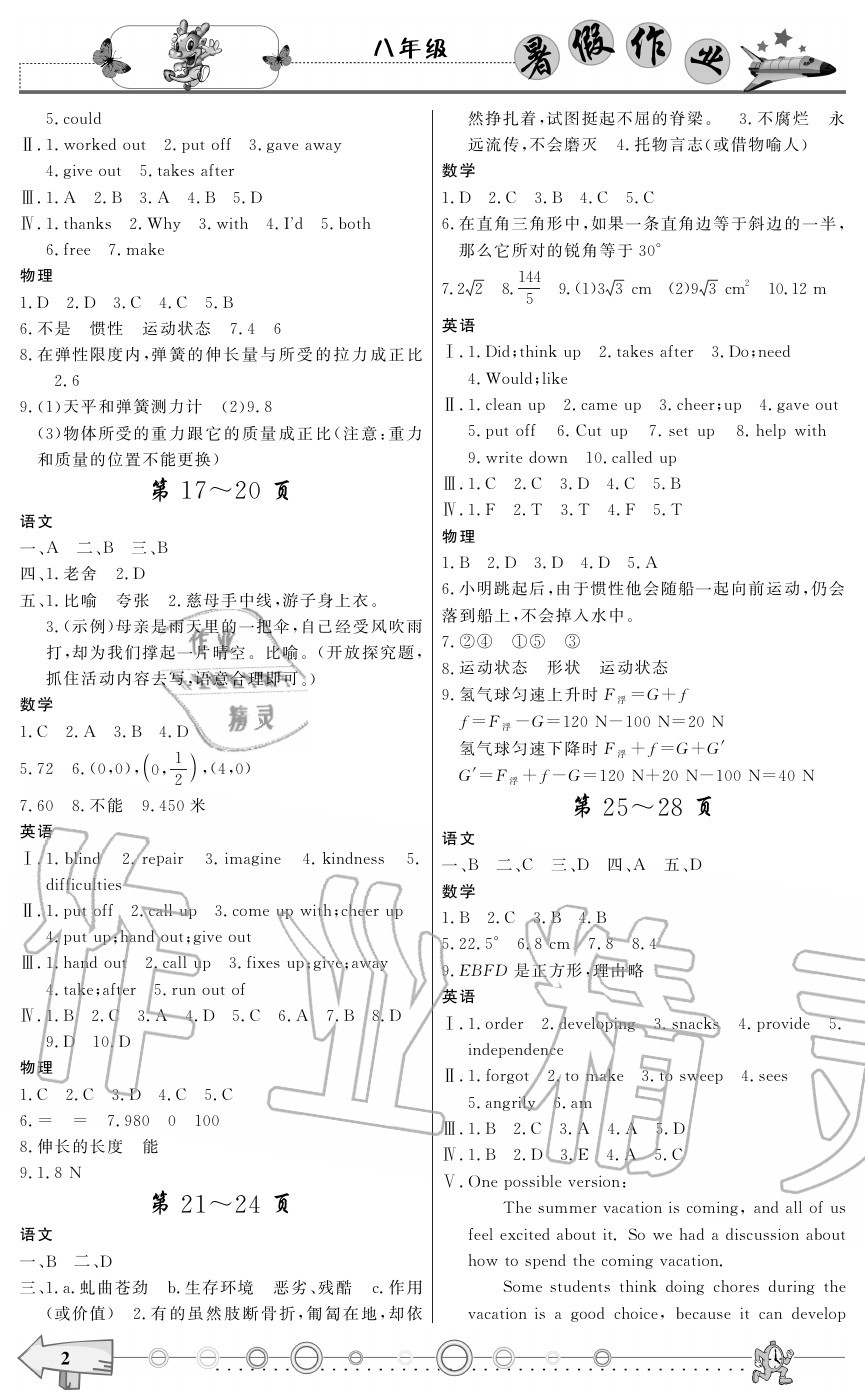 八年级 暑假作业
5. could
Ⅱ. 1. worked out 2. put off 3. gave away
4. give out 5. takes after
Ⅲ. 1. A 2. B 3. A 4. B 5. D
Ⅳ. 1. thanks 2. Why 3. with 4. I'd 5. both
6. free 7. make
物理
1. D 2. D 3. C 4. C 5. B
6. 不是 惯性 运动状态 7. 4 6
8. 在弹性限度内,弹簧的伸长量与所受的拉力成正比
2. 6
9. (1)天平和弹簧测力计 (2)9.8
(3)物体所受的重力跟它的质量成正比(注意:重力
和质量的位置不能更换)
第 17～20 页
语文
一、A 二、B 三、B
四、1. 老舍 2. D
五、1. 比喻 夸张 2. 慈母手中线,游子身上衣。
3. (示例)母亲是雨天里的一把伞,自己经受风吹雨
打,却为我们撑起一片晴空。比喻。(开放探究题,
抓住活动内容去写,语意合理即可。)
数学
1. C 2. A 3. B 4. D
5. 72 6. (0,0),(0,1/2),(4,0)
7. 60 8. 不能 9. 450 米
英语
Ⅰ. 1. blind 2. repair 3. imagine 4. kindness 5.
difficulties
Ⅱ. 1. put off 2. call up 3. come up with;cheer up
4. put up;hand out;give out
Ⅲ. 1. hand out 2. call up 3. fixes up;give;away
4. take;after 5. run out of
Ⅳ. 1. B 2. C 3. A 4. D 5. C 6. A 7. B 8. D
9. D 10. D
物理
1. C 2. C 3. D 4. C 5. C
6. = = 7. 980 0 100
8. 伸长的长度 能
9. 1.8 N
第 21～24 页
语文
一、B 二、D
三、1. a. 虬曲苍劲 b. 生存环境 恶劣、残酷 c. 作用
(或价值) 2. 有的虽然肢断骨折,匍匐在地,却依
然挣扎着,试图挺起不屈的脊梁。 3. 不腐烂 永
远流传,不会磨灭 4. 托物言志(或借物喻人)
数学
1. D 2. C 3. B 4. C 5. C
6. 在直角三角形中,如果一条直角边等于斜边的一半,
那么它所对的锐角等于 30°
7. 2√2 8. 144/5 9. (1)3√3 cm (2)9√3 cm² 10. 12 m
英语
Ⅰ. 1. Did;think up 2. takes after 3. Do;need
4. Would;like
Ⅱ. 1. clean up 2. came up 3. cheer;up 4. gave out
5. put off 6. Cut up 7. set up 8. help with
9. write down 10. called up
Ⅲ. 1. C 2. C 3. D 4. C 5. B
Ⅳ. 1. F 2. T 3. T 4. F 5. T
物理
1. B 2. D 3. D 4. D 5. A
6. 小明跳起后,由于惯性他会随船一起向前运动,仍会
落到船上,不会掉入水中。
7. ②④ ①⑤ ③
8. 运动状态 形状 运动状态
9. 氢气球匀速上升时 F浮=G+f
f=F浮-G=120 N-100 N=20 N
氢气球匀速下降时 F浮+f=G+G′
G′=F浮+f-G=120 N+20 N-100 N=40 N
第 25～28 页
语文
一、B 二、C 三、D 四、A 五、D
数学
1. B 2. C 3. B 4. B
5. 22.5° 6. 8 cm 7. 8 8. 4
9. EBFD 是正方形,理由略
英语
Ⅰ. 1. order 2. developing 3. snacks 4. provide 5.
independence
Ⅱ. 1. forgot 2. to make 3. to sweep 4. sees
5. angrily 6. am
Ⅲ. 1. B 2. C 3. A 4. A 5. D
Ⅳ. 1. B 2. D 3. E 4. A 5. C
Ⅴ. One possible version:
The summer vacation is coming, and all of us
feel excited about it. So we had a discussion about
how to spend the coming vacation.
Some students think doing chores during the
vacation is a good choice, because it can develop
2
作业精灵
作业
精灵